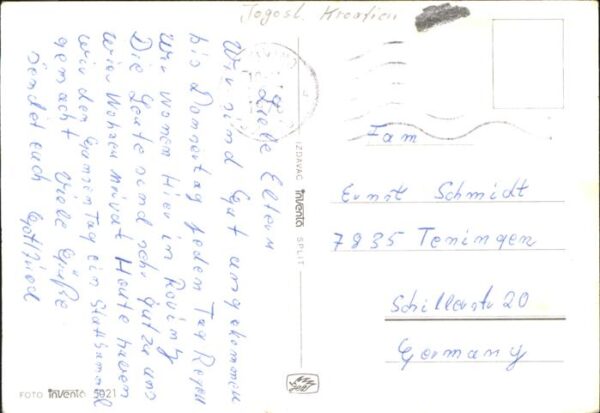 Jogosl. Kroatien
Liebe Eltern
Wir sind Gut angekommen
bis Donnerstag jeden Tag Regen
Wir wonen Hier in Rovinj
Die Leute sind sehr Gut zu uns
Wier Wohnen privat Heute haben
wir den Ganzen Tag ein
gemacht Viele Grüße
sendet euch Gottfried
Fam
Ernst Schmidt
7835 Teningen
Schillerstr 20
Germany
IZDAVAČ invento SPLIT
FOTO invento 5021